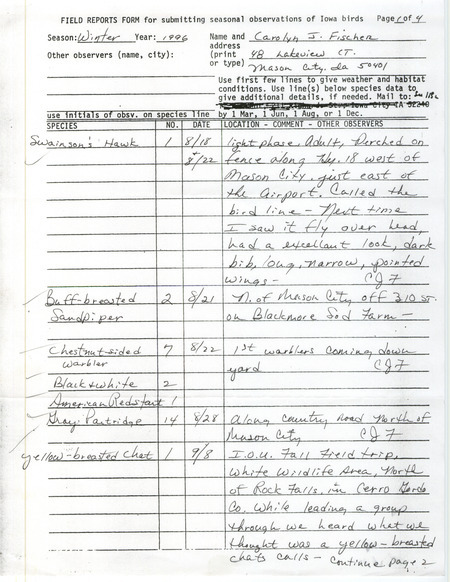 FIELD REPORTS FORM for submitting seasonal observations of Iowa birds Page 1 of 4
Season: Winter Year: 1996 Name and Carolyn J. Fischer
address
Other observers (name, city): (print 48 Lakeview CT.
or type) Mason City, Ia 50401
Use first few lines to give weather and habitat
conditions. Use line(s) below species data to
give additional details, if needed. Mail to:
Iowa City IA 52240
use initials of obsv. on species line by 1 Mar, 1 Jun, 1 Aug, or 1 Dec.
SPECIES NO. DATE LOCATION - COMMENT - OTHER OBSERVERS
Swainson's Hawk 1 8/18 light phase Adult, Perched on
+ 8/22 fence along Hy. 18 west of
Mason City, just east of
the Airport. Called the
bird line - Next time
I saw it fly over head,
had a excellant look, dark
bib, long, narrow, pointed
wings - CJF
Buff-breasted 2 8/21 N. of Mason City off 310 st.
Sandpiper on Blackmore Sod Farm -
Chestnut-sided 7 8/22 1st warblers coming down
warbler yard CJF
Black & white 2
American Redstart 1
Gray Partridge 14 8/28 Along country road North of
Mason City CJF
yellow-breasted Chat 1 9/8 I.O.U. Fall Field trip,
White Wildlife Area, North
of Rock Falls, in Cerro Gordo
Co. While leading a group
through we heard what we
thought was a yellow-breasted
chats calls - continue page 2